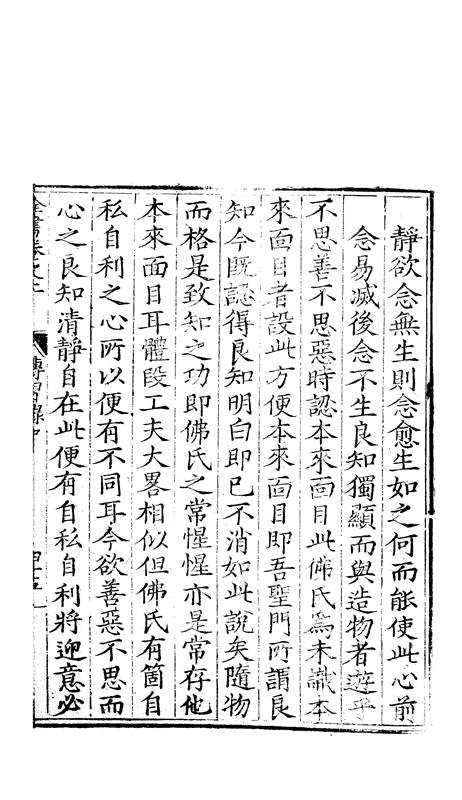 靜欲念無生則念愈生如之何而能使此心前
念易滅後念不生良知獨顯而與造物者遊乎
不思善不思惡時認本來面目此佛氏為未識本
來面目者設此方便本來面目即吾聖門所謂良
知今既認得良知明白即已不消如此說矣隨物
而格是致知之功即佛氏之常惺惺亦是常存他
本來面目耳體段工夫大畧相似但佛氏有箇自
私自利之心所以便有不同耳今欲善惡不思而
心之良知清靜自在此便有自私自利將迎意必
全書卷之二
傳習錄中